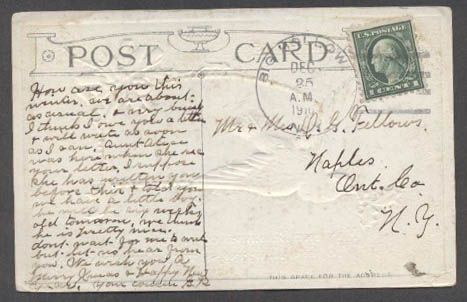 POST CARD
BIG HOLLOW
DEC
25
A.M.
U.S. POSTAGE
1 CENT 1
How are you this
winter, we are about
as usual, & very busy
I think I owe you a letter
& will write as soon
as I can. Aunt Alyse
was here when she rec
your letter, I suppose
she has written you
before this & told you
we have a little boy.
he will be six weeks
old tomorrow, we think
he is pretty nice.
dont wait for me to write
but let us hear from
you. We wish you a
Merry Xmas & Happy New
Year. Your cousin
Mr & Mrs G. Fellows.
Naples.
Ont. Co
N. Y.
THIS SPACE FOR THE ADDRESS